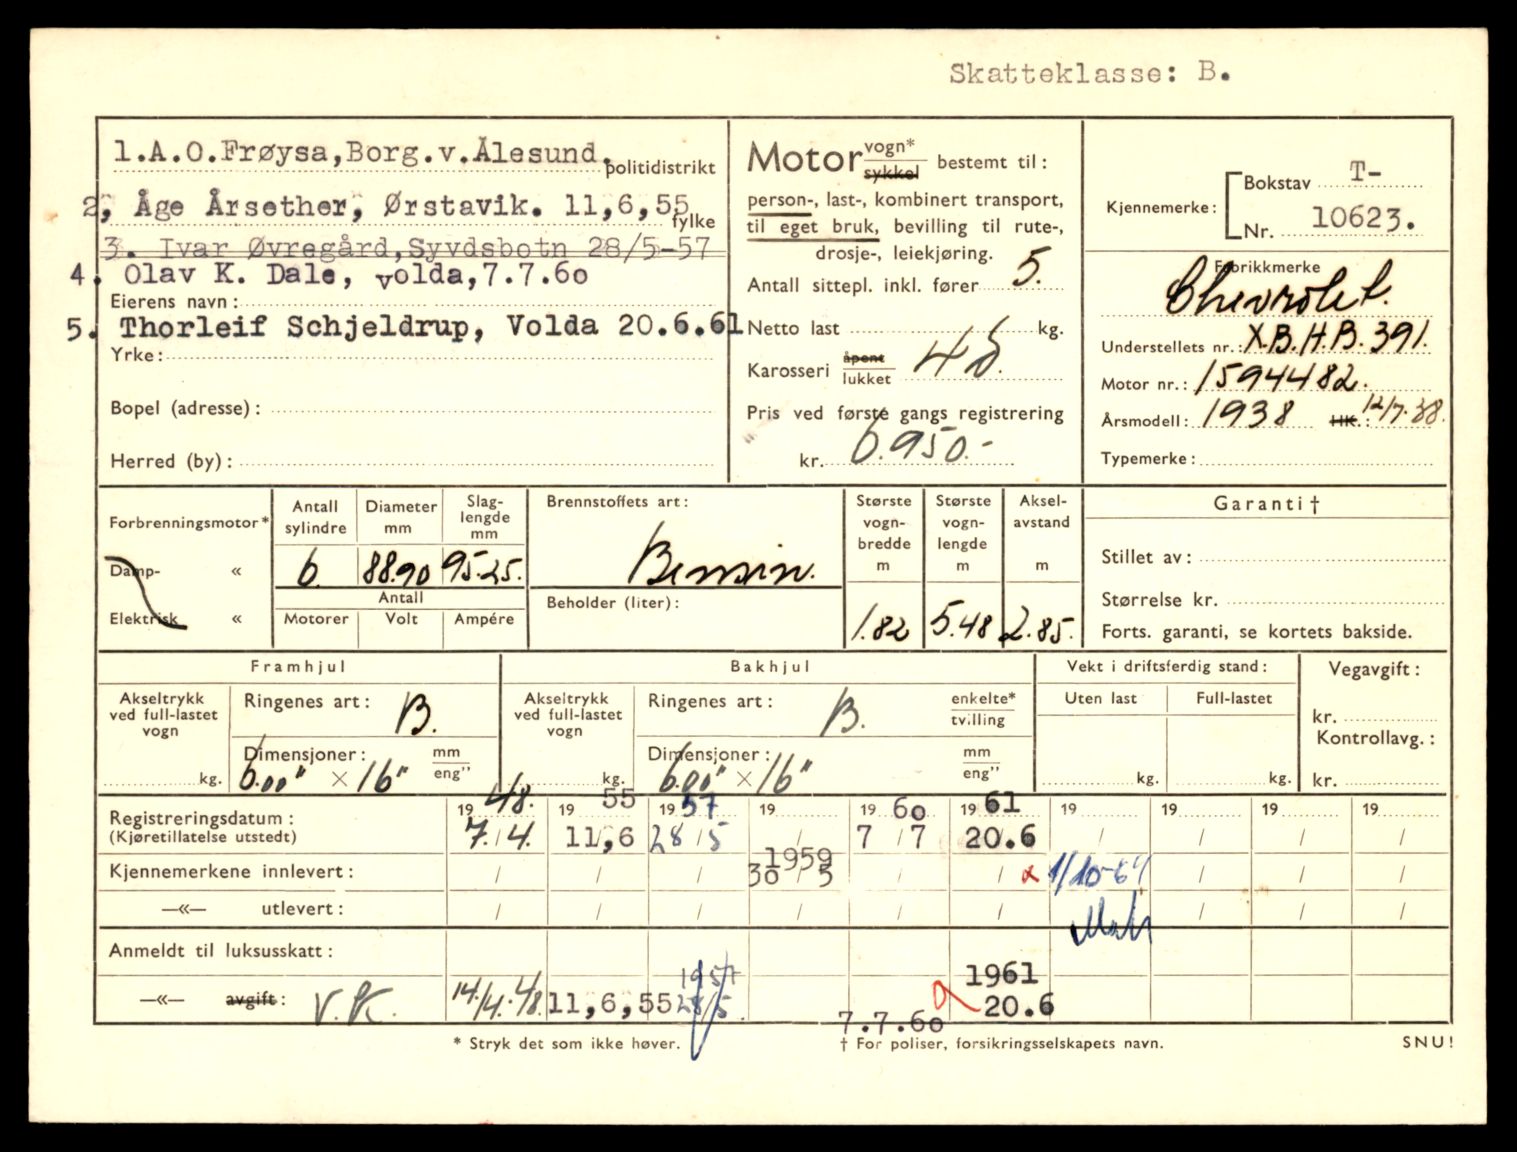 Skatteklasse: B.
1.A.O.Frøysa,Borg.v.Ålesund. politidistrikt
2, Åge Årsether, Ørstavik. 11,6,55
fylke
3. Ivar Øvregård,Syvdsbotn 28/5-57
4. Olav K. Dale, volda,7.7.60
Eierens navn:
5. Thorleif Schjeldrup, Volda 20.6.61
Yrke:
Bopel (adresse):
Herred (by):
Motor vogn* sykkel bestemt til:
person-, last-, kombinert transport,
til eget bruk, bevilling til rute-,
drosje-, leiekjøring.
Antall sittepl. inkl. fører 5.
Netto last kg.
Karosseri åpent lukket 4d.
Pris ved første gangs registrering
kr. 6.950.-
Kjennemerke: Bokstav T-
Nr. 10623.
Fabrikkmerke
Chevrolet.
Understellets nr.: X.B.H.B. 391.
Motor nr.: 1594482.
Årsmodell: 1938 HK.: 12/7.38.
Typemerke:
Forbrenningsmotor*
Damp- «
Elektrisk «
Antall sylindre
Diameter mm
Slag-lengde mm
6. 88.90 95.25.
Antall
Motorer Volt Ampére
Brennstoffets art:
Bensin.
Beholder (liter):
Største vogn-bredde m
Største vogn-lengde m
Aksel-avstand m
1.82 5.48 2.85.
Garanti†
Stillet av:
Størrelse kr.
Forts. garanti, se kortets bakside.
Framhjul
Akseltrykk ved full-lastet vogn
kg.
Ringenes art: B.
Dimensjoner: mm eng"
6.00" × 16"
Bakhjul
Akseltrykk ved full-lastet vogn
kg.
Ringenes art: B. enkelte* tvilling
Dimensjoner: mm eng"
6.00" × 16"
Vekt i driftsferdig stand:
Uten last Full-lastet
kg. kg.
Vegavgift:
kr.
Kontrollavg.:
kr.
Registreringsdatum: 19 48. 19 55 19 57 19 19 60 19 61 19 19 19 19
(Kjøretillatelse utstedt) 7./4. 11,6 28/5 / 7/7 20.6 / / / /
1959
Kjennemerkene innlevert: / / / 30/3 / / 1/10-64 / / /
—«— utlevert: / / / / / / / / /
Anmeldt til luksusskatt:
1957 1961
—«— avgift: V.K. 14./4.48. 11,6,55 28/5. 7.7.60 20.6
* Stryk det som ikke høver.
† For poliser, forsikringsselskapets navn.
SNU!